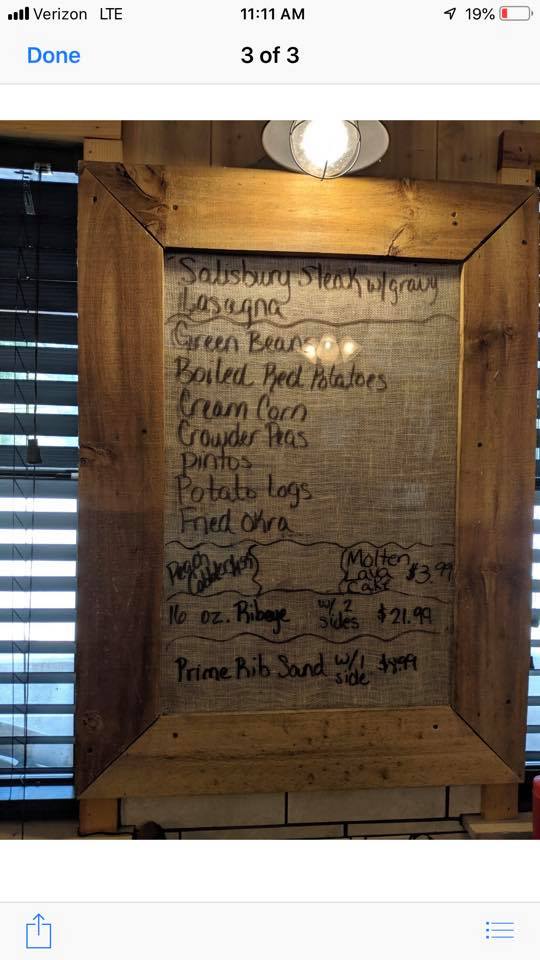 Verizon LTE 11:11 AM 19%
Done 3 of 3
Salisbury Steak w/gravy
Lasagna
Green Beans
Boiled Red Potatoes
Cream Corn
Crowder Peas
Pintos
Potato Logs
Fried Okra
Molten
Lava
Cake $3.99
16 oz. Ribeye w/ 2 sides $21.99
Prime Rib Sand w/1 side $8.99